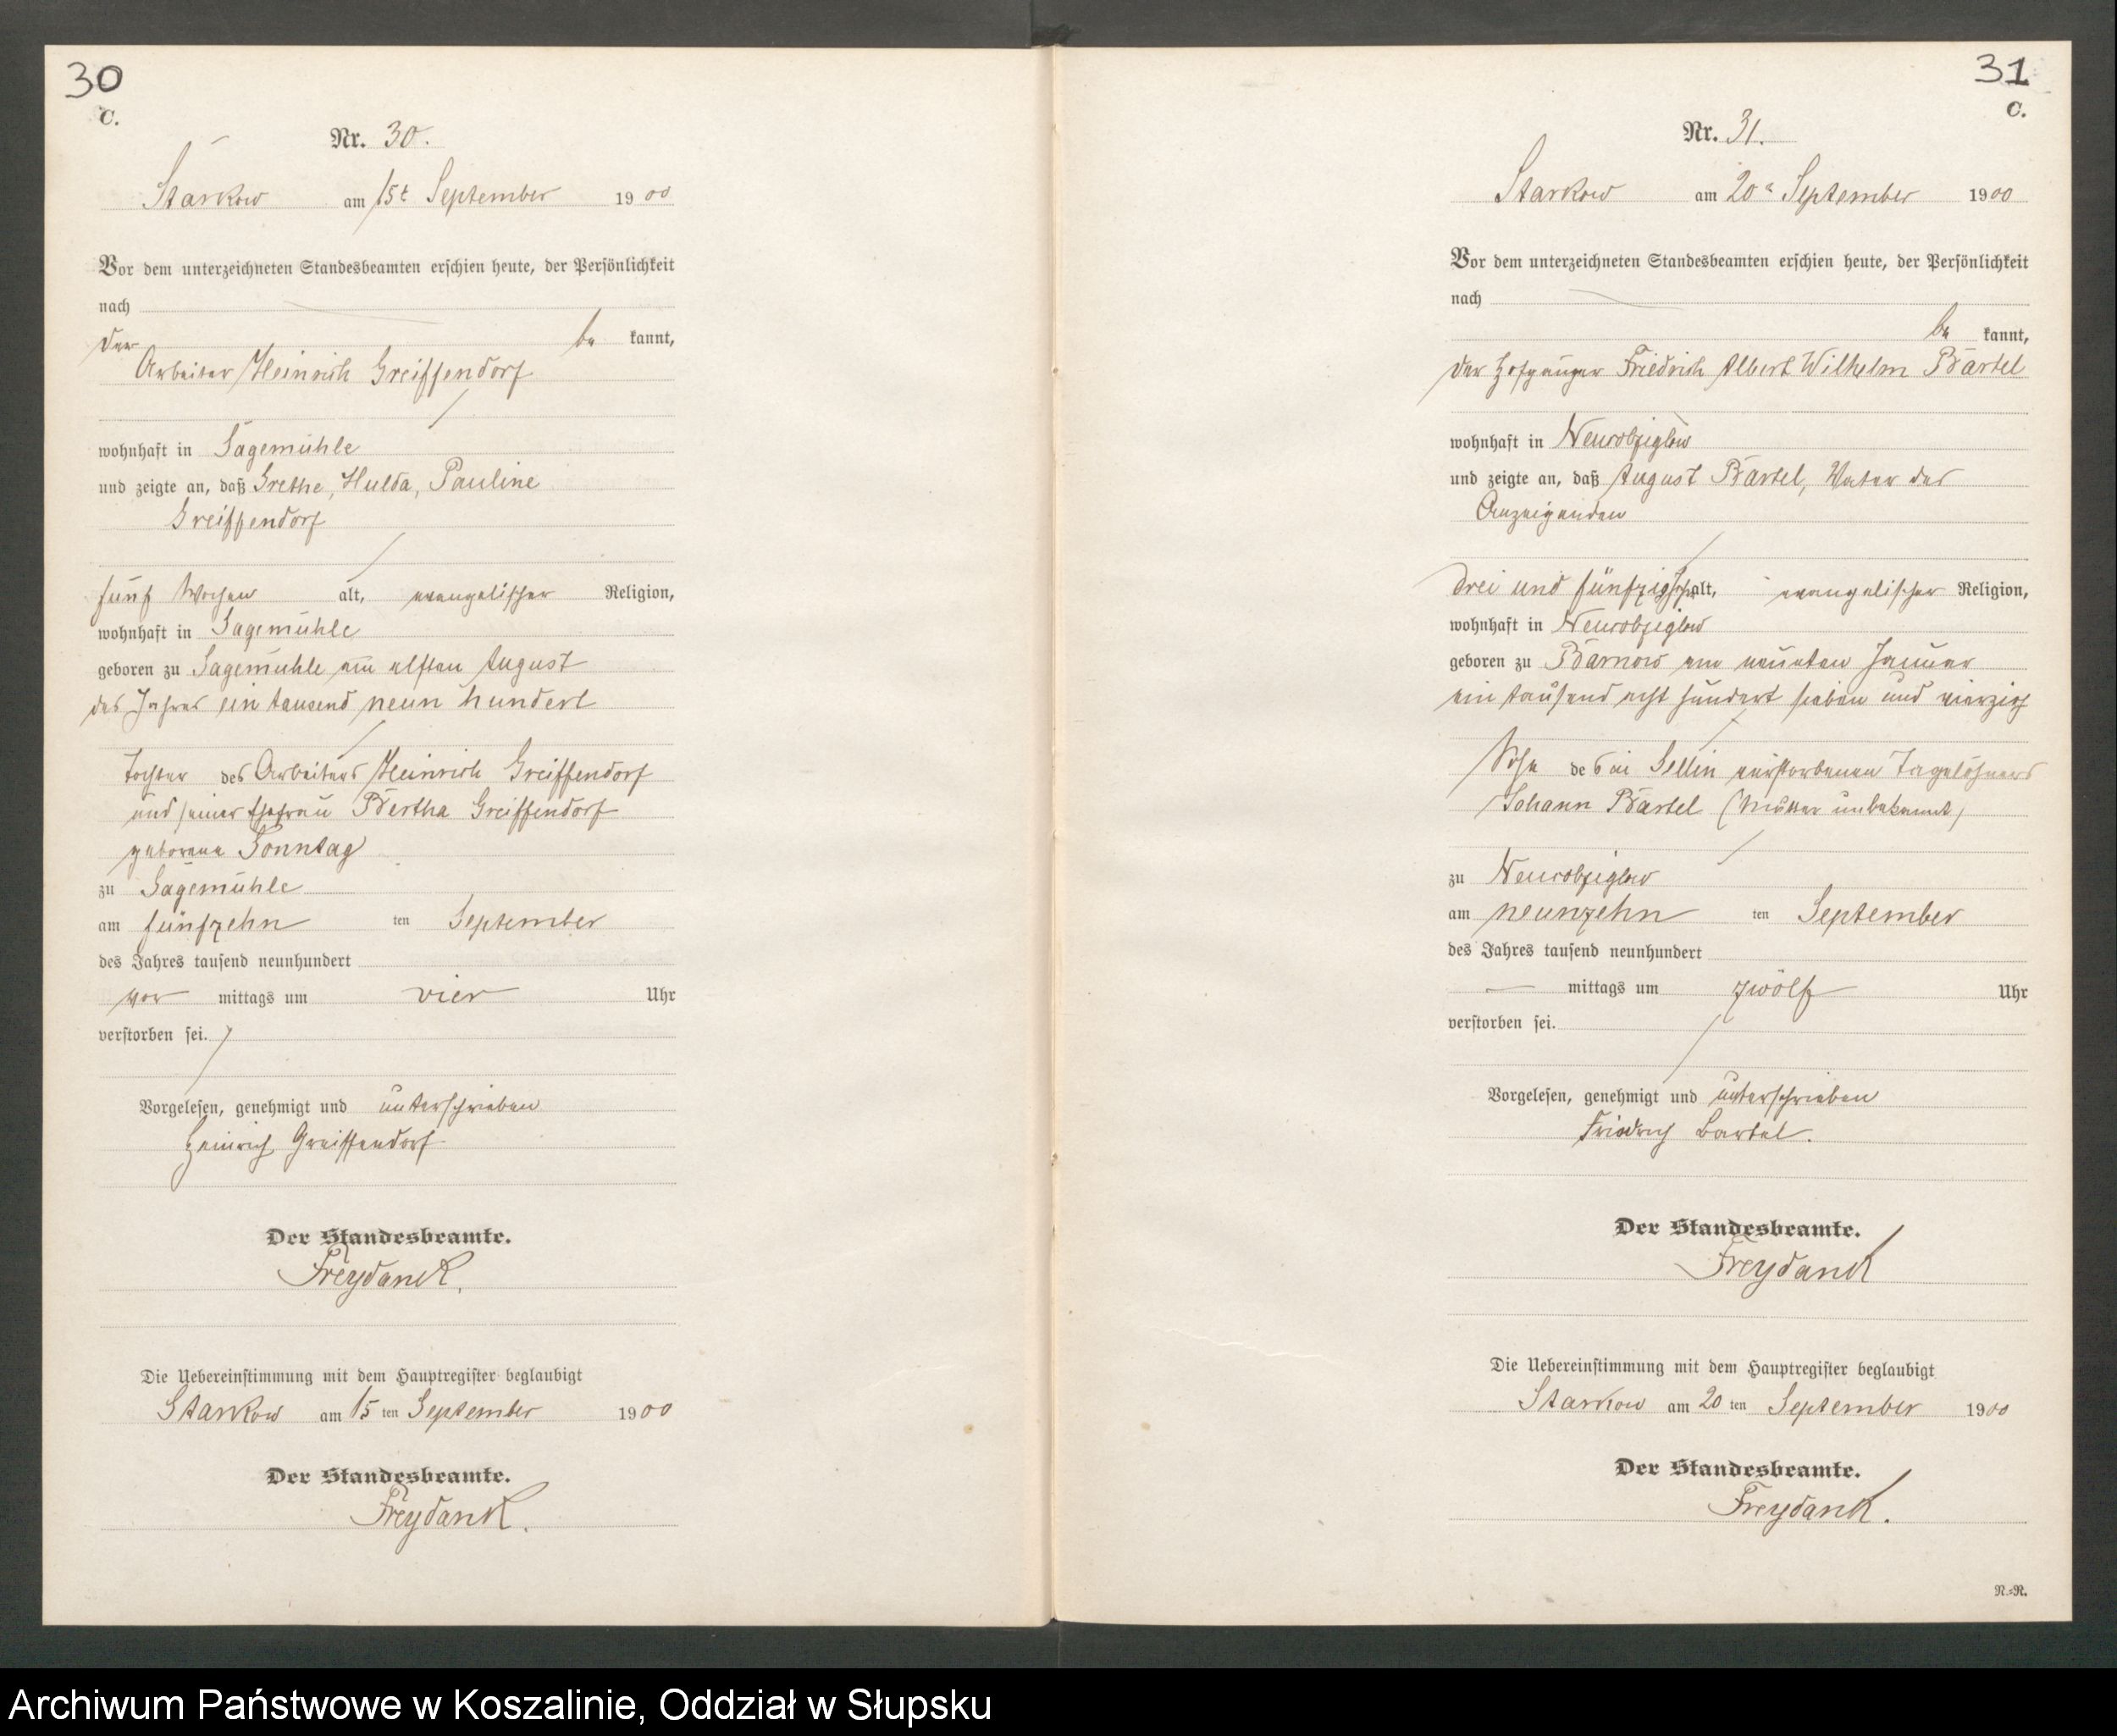 30
C.
Nr. 30.
Starkow am 15t September 1900
Vor dem unterzeichneten Standesbeamten erschien heute, der Persönlichkeit
nach
der be kannt,
Arbeiter Heinrich Greiffendorf
wohnhaft in Sägemühle
und zeigte an, daß Grethe, Hulda, Pauline
Greiffendorf
fünf Wochen alt, evangelischer Religion,
wohnhaft in Sägemühle
geboren zu Sägemühle am elften August
des Jahres ein tausend neun hundert
Tochter des Arbeiters Heinrich Greiffendorf
und seiner Ehefrau Bertha Greiffendorf
geborene Sonntag
zu Sägemühle
am fünfzehn ten September
des Jahres tausend neunhundert
vor mittags um vier Uhr
verstorben sei.
Vorgelesen, genehmigt und unterschrieben
Heinrich Greiffendorf
Der Standesbeamte.
Freydank.
Die Uebereinstimmung mit dem Hauptregister beglaubigt
Starkow am 15 ten September 1900
Der Standesbeamte.
Freydank.
31
C.
Nr. 31.
Starkow am 20 September 1900
Vor dem unterzeichneten Standesbeamten erschien heute, der Persönlichkeit
nach
be kannt,
der Hofgänger Friedrich Albert Wilhelm Bartel
wohnhaft in Neuwobeziglow
und zeigte an, daß August Bartel, Vater des
Anzeigenden
drei und fünfzig Jahr alt, evangelischer Religion,
wohnhaft in
geboren zu Barnow am neunten Januar
ein tausend acht hundert sieben und vierzig
Sohn des in Sellin verstorbenen Tagelöhners
Johann Bartel (Mutter unbekannt)
zu
am neunzehn ten September
des Jahres tausend neunhundert
mittags um zwölf Uhr
verstorben sei.
Vorgelesen, genehmigt und unterschrieben
Friedrich Bartel.
Der Standesbeamte.
Freydank
Die Uebereinstimmung mit dem Hauptregister beglaubigt
Starkow am 20 ten September 1900
Der Standesbeamte.
Freydank.
N.=R.
Archiwum Państwowe w Koszalinie, Oddział w Słupsku